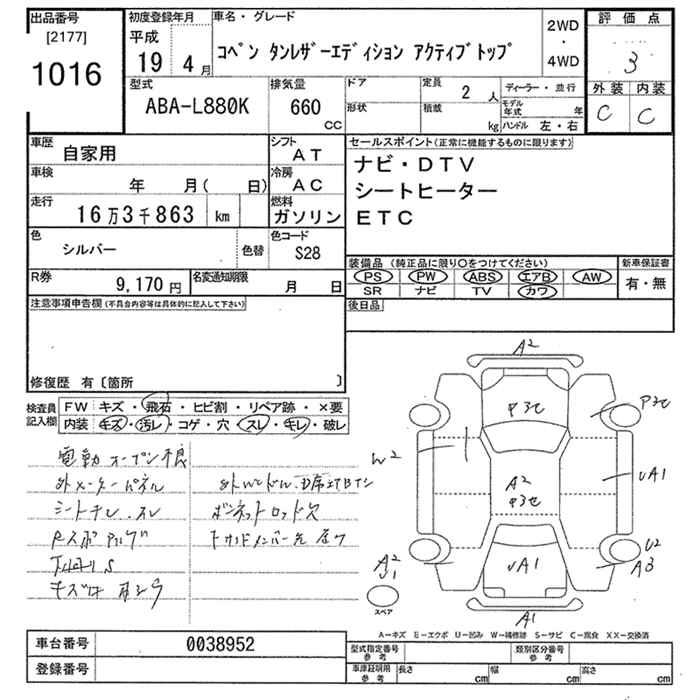 出品番号
[2177]
1016
初度登録年月
平成
19 4 月
車名・グレード
コペン タンレザーエディション アクティブトップ
2WD
・
4WD
評価点
3
外装 内装
C C
型式
ABA-L880K
排気量
660
CC
ドア
形状
定員
2 人
積載
kg
ディーラー・並行
モデル年式 年
ハンドル 左・右
車歴
自家用
シフト
AT
車検
年 月( 日)
冷房
AC
走行
16万3千863 km
燃料
ガソリン
色
シルバー
色替
色コード
S28
R券
9,170 円
名変通知期限
月 日
セールスポイント(正常に機能するものに限ります)
ナビ・DTV
シートヒーター
ETC
装備品 (純正品に限り○をつけてください)
PS PW ABS エアB AW
SR ナビ TV カワ
新車保証書
有・無
後日品
注意事項申告欄(不具合内容等は具体的に記入して下さい)
修復歴 有〔箇所 〕
検査員
記入欄
FW キズ・飛石・ヒビ割・リペア跡・×要
内装 キズ・汚レ・コゲ・穴・スレ・キレ・破レ
電動オープン不良
外メーターパネル
シートキレ.スレ
キズ
A2
W2
A2
UA1
UA1
U2
A3
A2
A1
スペア
A-キズ E-エクボ U-凹み W-補修跡 S-サビ C-腐食 XX-交換済
車台番号
0038952
登録番号
型式指定番号
参考
類別区分番号
参考
車庫証明用
参考
長さ cm
幅 cm
高さ cm